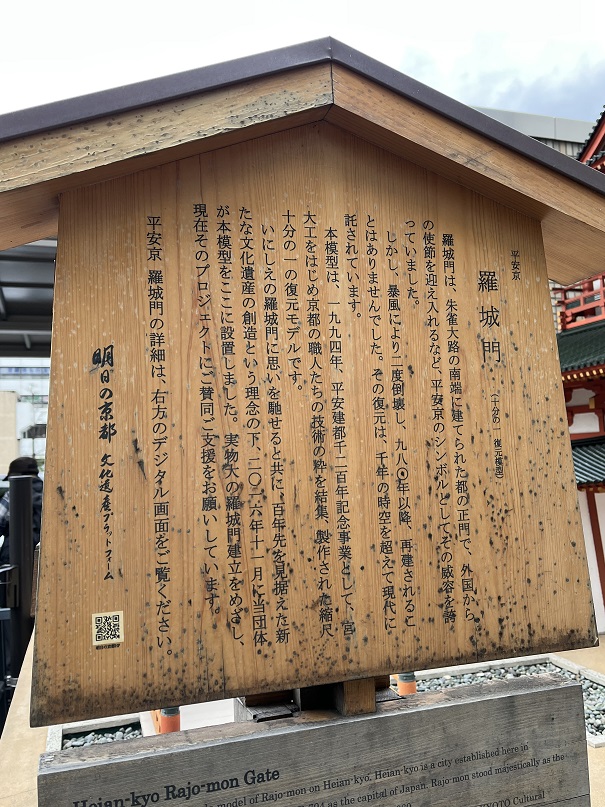 平安京
羅城門 (十分の一 復元模型)
羅城門は、朱雀大路の南端に建てられた都の正門で、外国から
の使節を迎え入れるなど、平安京のシンボルとしてその威容を誇
っていました。
しかし、暴風により二度倒壊し、九八〇年以降、再建されるこ
とはありませんでした。その復元は、千年の時空を超えて現代に
託されています。
本模型は、一九九四年、平安建都千二百年記念事業として、宮
大工をはじめ京都の職人たちの技術の粋を結集、製作された縮尺
十分の一の復元モデルです。
いにしえの羅城門に思いを馳せると共に、百年先を見据えた新
たな文化遺産の創造という理念の下、二〇一六年十一月に当団体
が本模型をここに設置しました。実物大の羅城門建立をめざし、
現在そのプロジェクトにご賛同ご支援をお願いしています。
平安京 羅城門の詳細は、右方のデジタル画面をご覧ください。
明日の京都 文化遺産プラットフォーム
Heian-kyo Rajo-mon Gate
model of Rajo-mon on Heian-kyo. Heian-kyo is a city established here in
794 as the capital of Japan. Rajo-mon stood majestically as the
KYOTO Cultural